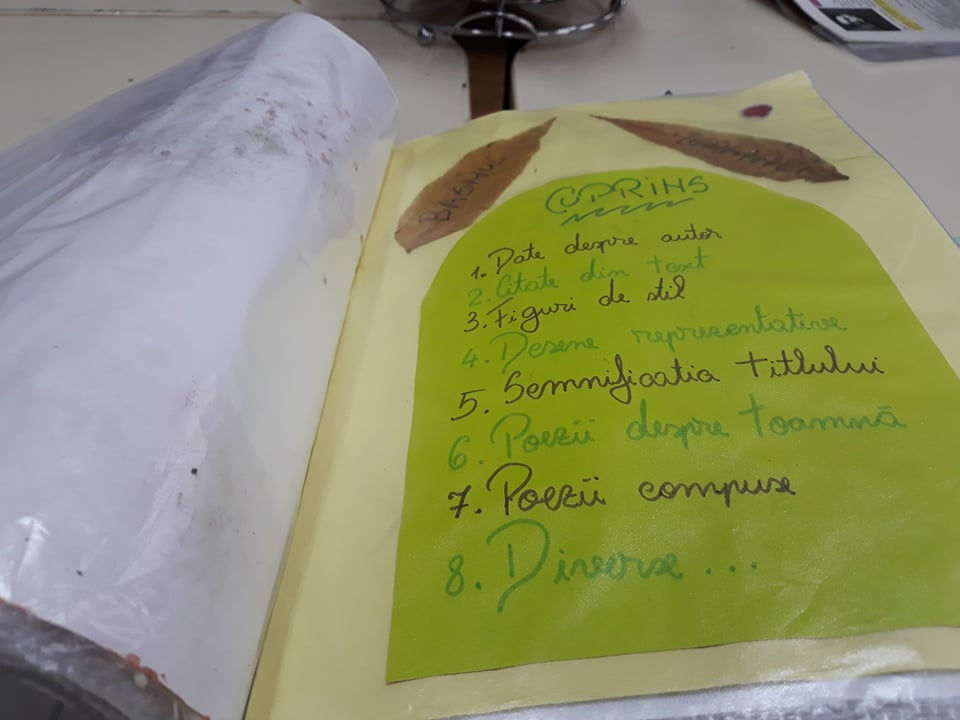 BASMUL
TOAMNEI
CUPRINS
1. Date despre autor
2. Citate din text
3. Figuri de stil
4. Desene reprezentative
5. Semnificatia titlului
6. Poezii despre toamnă
7. Poezii compuse
8. Diverse...